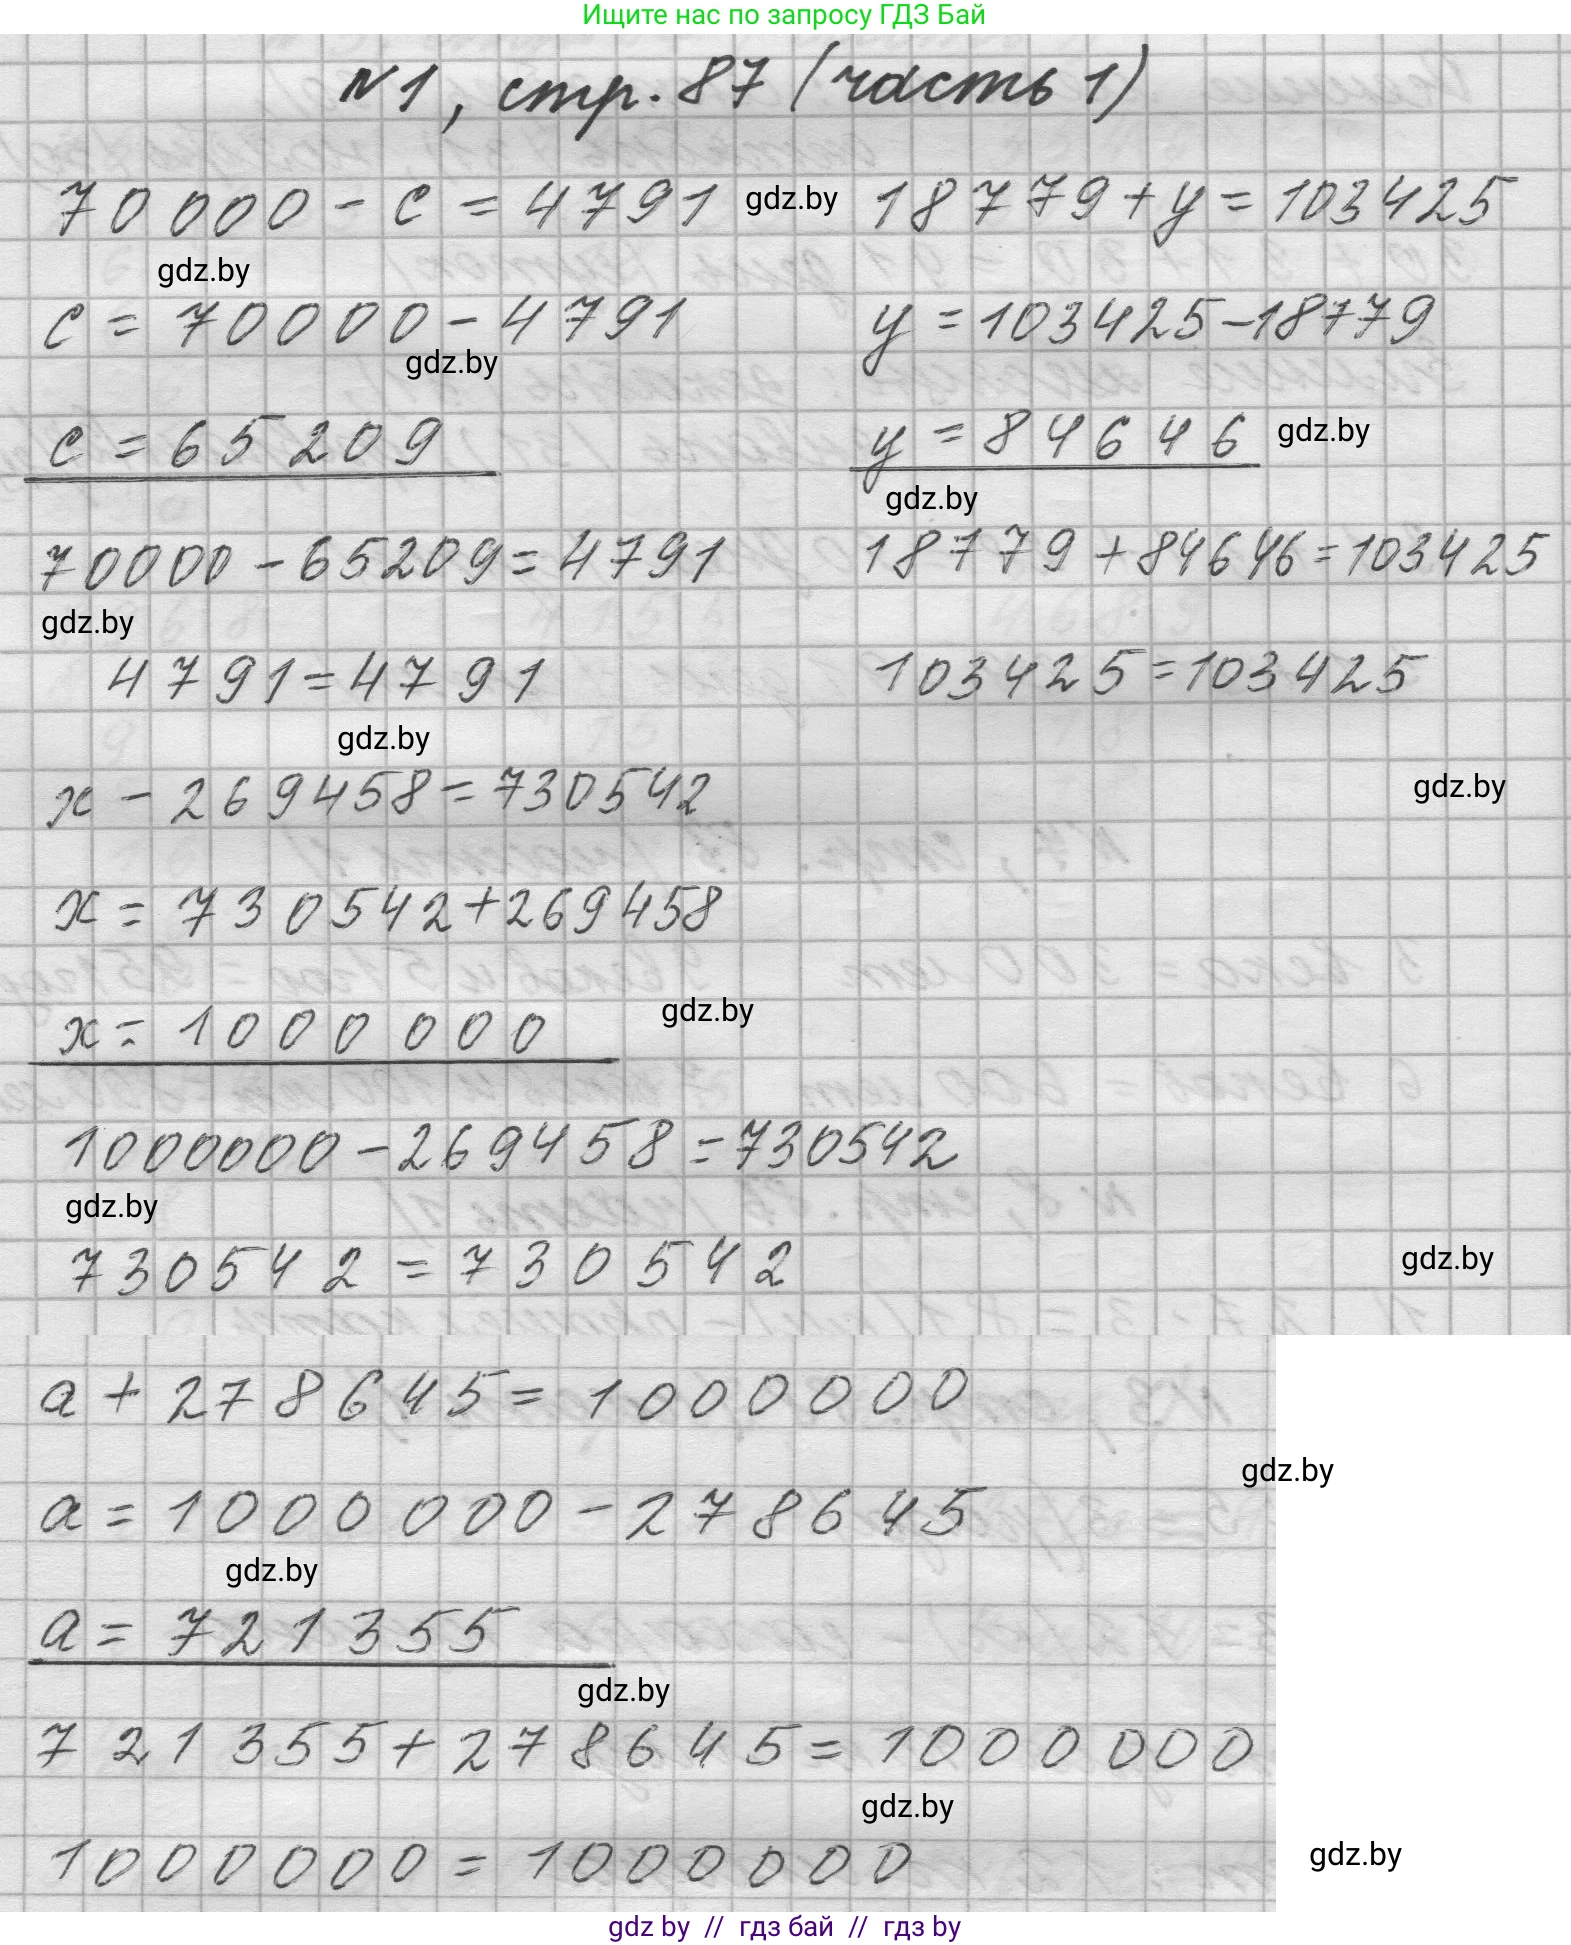 Ищите нас по запросу ГДЗ Бай
№1, стр. 87 (часть 1)
70000 - c = 4791 gdz.by 18779 + y = 103425
gdz.by
c = 70000 - 4791 y = 103425 - 18779
gdz.by
c = 65209 y = 84646 gdz.by
gdz.by
70000 - 65209 = 4791 18779 + 84646 = 103425
gdz.by
4791 = 4791 103425 = 103425
gdz.by
x - 269458 = 730542 gdz.by
x = 730542 + 269458
x = 1000000 gdz.by
1000000 - 269458 = 730542
gdz.by
730542 = 730542 gdz.by
a + 278645 = 1000000
gdz.by
a = 1000000 - 278645
gdz.by
a = 721355
gdz.by
721355 + 278645 = 1000000
gdz.by
1000000 = 1000000 gdz.by
gdz by // гдз бай // гдз by